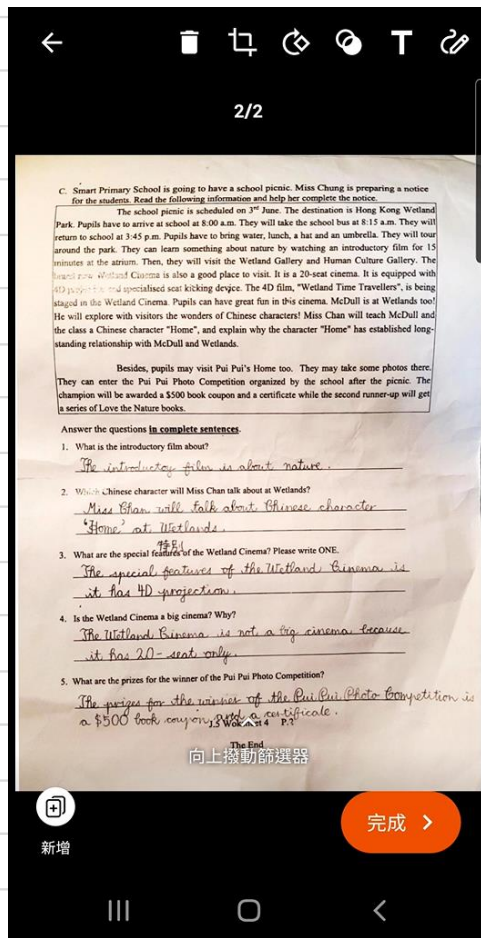 T
2/2
C. Smart Primary School is going to have a school picnic. Miss Chung is preparing a notice
for the students. Read the following information and help her complete the notice.
The school picnic is scheduled on 3rd June. The destination is Hong Kong Wetland
Park. Pupils have to arrive at school at 8:00 a.m. They will take the school bus at 8:15 a.m. They will
return to school at 3:45 p.m. Pupils have to bring water, lunch, a hat and an umbrella. They will tour
around the park. They can learn something about nature by watching an introductory film for 15
minutes at the atrium. Then, they will visit the Wetland Gallery and Human Culture Gallery. The
brand new Wetland Cinema is also a good place to visit. It is a 20-seat cinema. It is equipped with
4D and specialised seat kicking device. The 4D film, "Wetland Time Travellers", is being
staged in the Wetland Cinema. Pupils can have great fun in this cinema. McDull is at Wetlands too!
He will explore with visitors the wonders of Chinese characters! Miss Chan will teach McDull and
the class a Chinese character "Home", and explain why the character "Home" has established long-
standing relationship with McDull and Wetlands.
Besides, pupils may visit Pui Pui's Home too. They may take some photos there.
They can enter the Pui Pui Photo Competition organized by the school after the picnic. The
champion will be awarded a $500 book coupon and a certificate while the second runner-up will get
a series of Love the Nature books.
Answer the questions in complete sentences.
1. What is the introductory film about?
The introductoy film is about nature.
2. Which Chinese character will Miss Chan talk about at Wetlands?
Miss Chan will talk about Chinese character
'Home' at Wetlands.
特別
3. What are the special features of the Wetland Cinema? Please write ONE.
The special features of the Wetland Cinema is
it has 4D projection.
4. Is the Wetland Cinema a big cinema? Why?
The Wetland Cinema is not a big cinema because
it has 20-seat only.
5. What are the prizes for the winner of the Pui Pui Photo Competition?
The prizes for the winner of the Pui Pui Photo Competition is
a $500 book coupon and a certificate.
J.5 Worksheet 4 P.2
The End
向上撥動篩選器
新增
完成